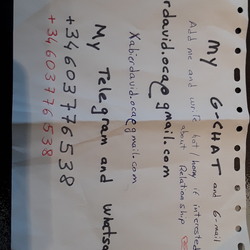 My G-CHAT and G-mail
Add me and write hot/horny if interested
about Relationship
rdavid.ocap@gmail.com
Xabierdavid.ocap@gmail.com
My Telegram and whatsa
+34603776538
+34603776538